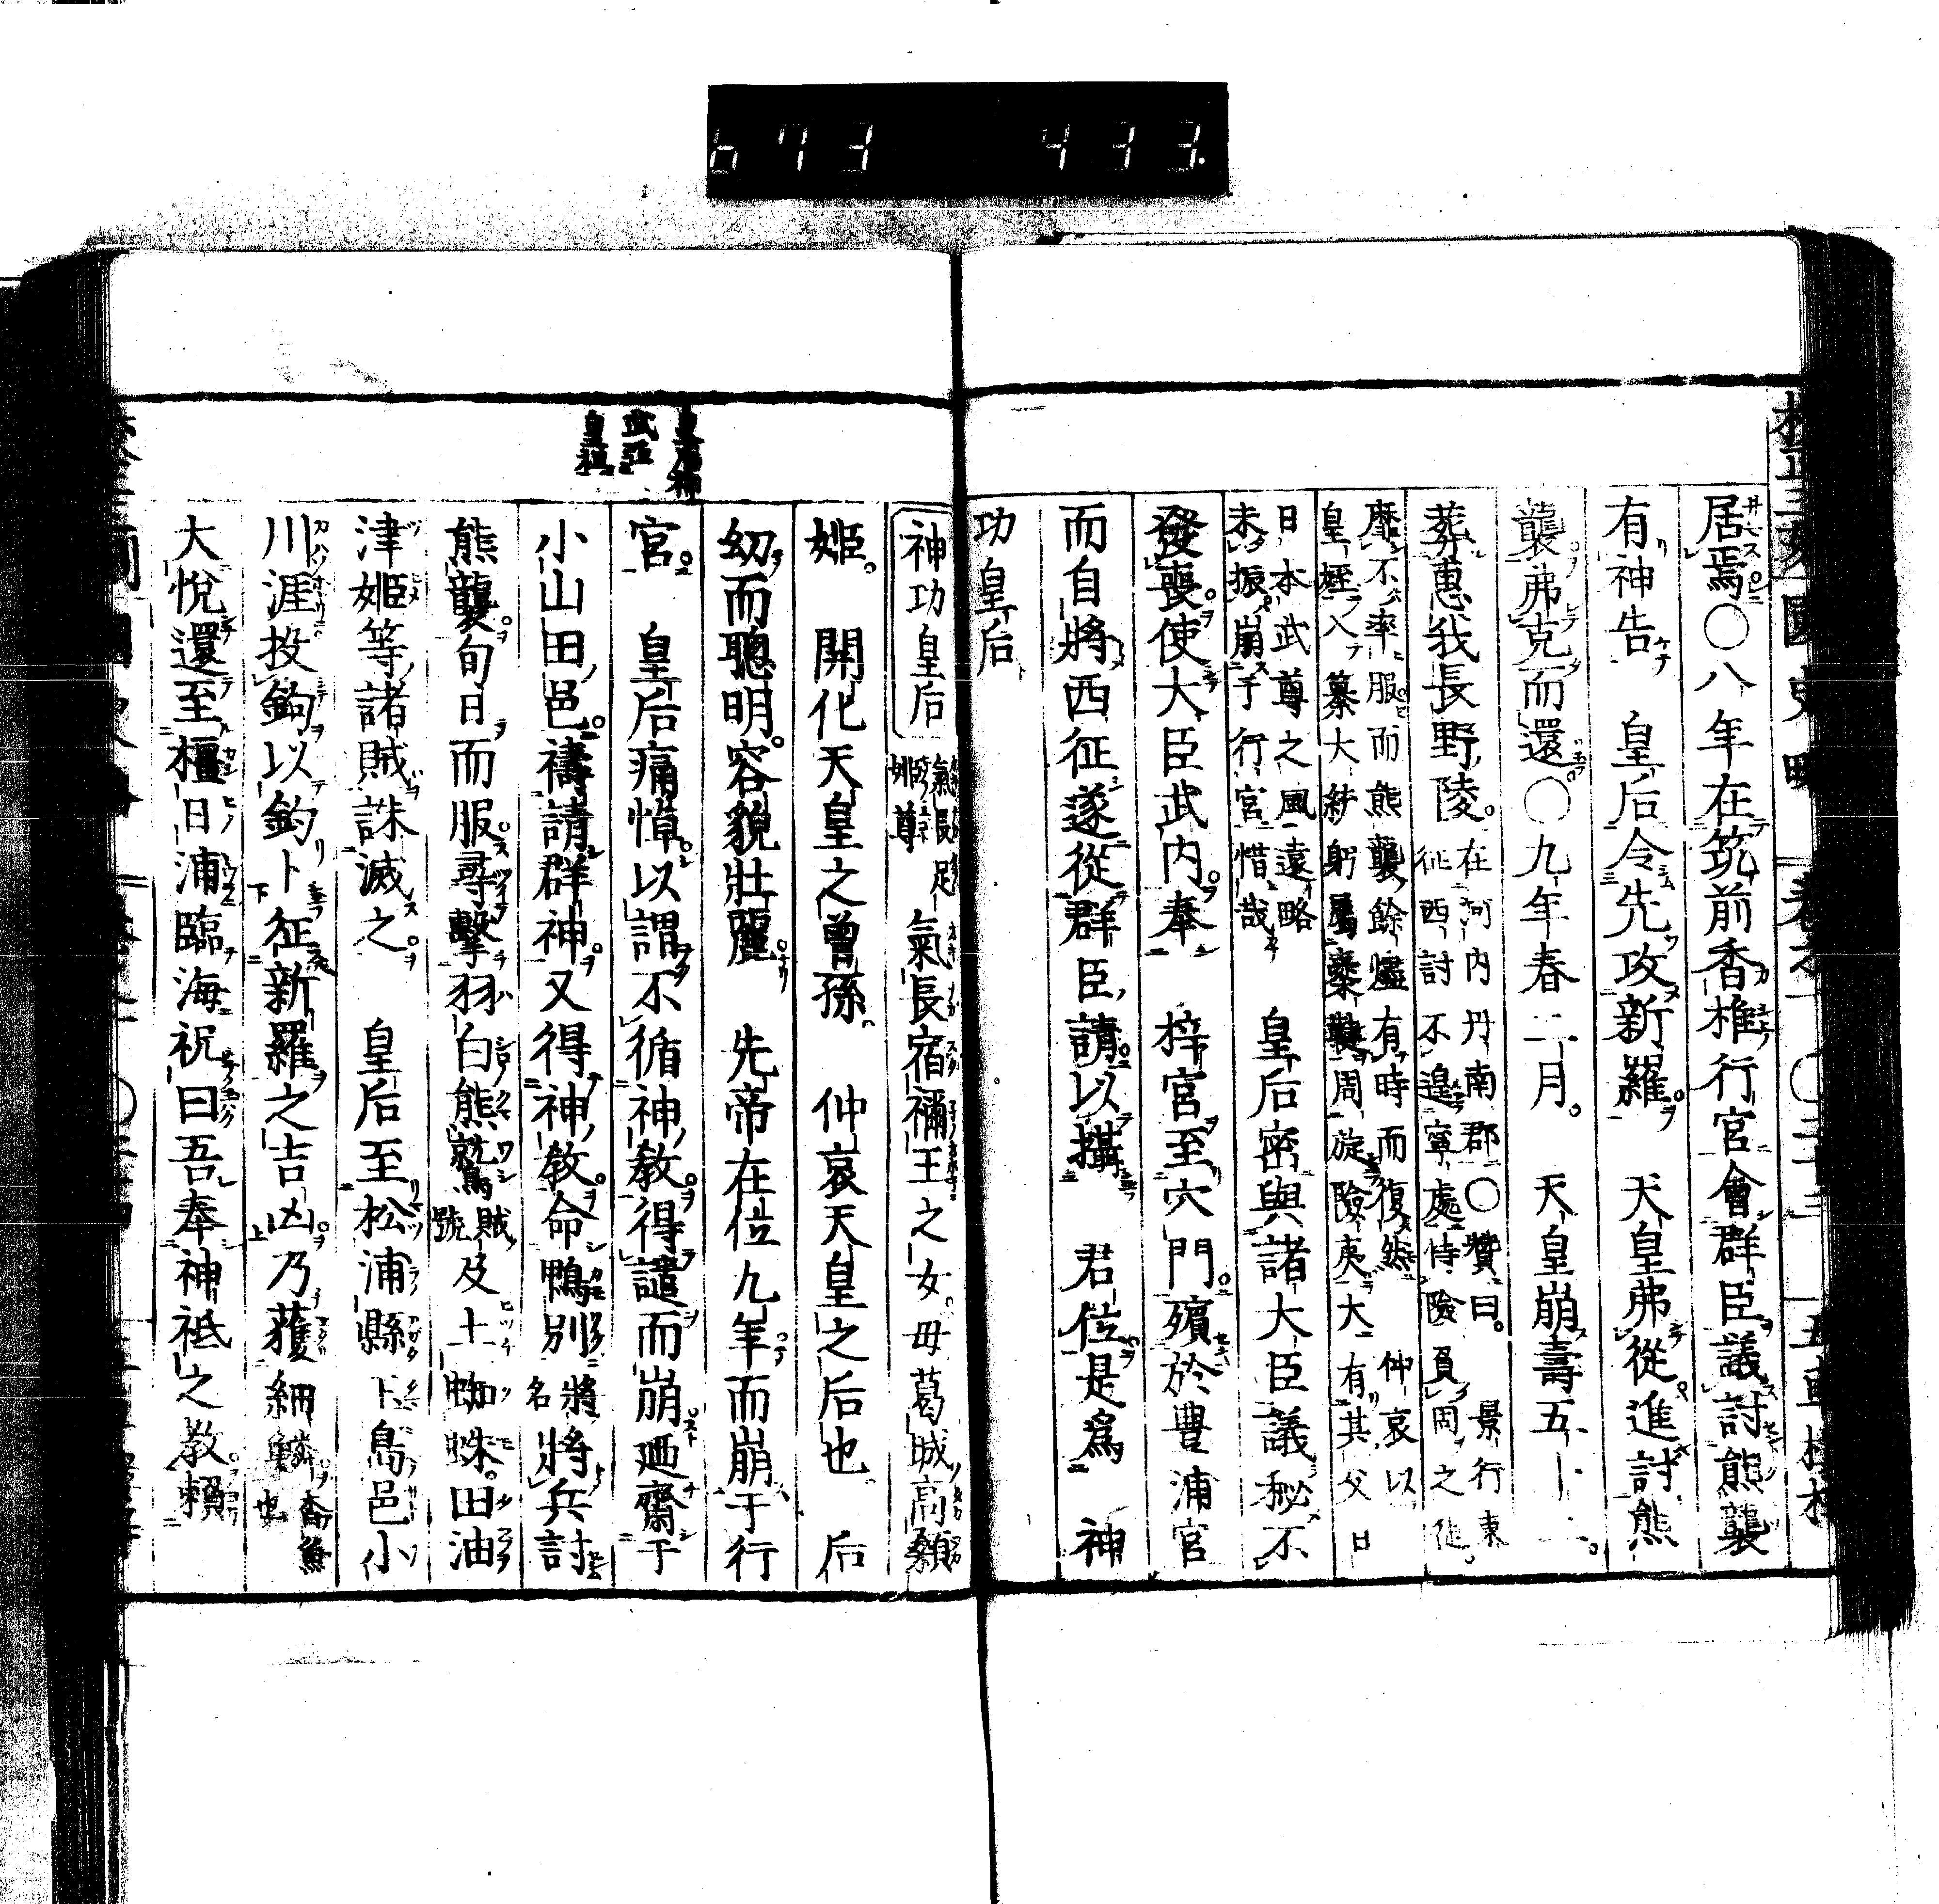 673 433.
居焉〇八年在筑前香椎行宮會群臣議討熊襲
有神告 皇后令先攻新羅 天皇弗從進討熊
襲弗克而還〇九年春二月 天皇崩壽五十二
葬惠我長野陵 在河內丹南郡〇贊曰 景行東
征西討不遑寧處恃險負固之徒
靡不率服而熊襲餘燼有時而復然 仲哀以
皇姪入纂大統躬屬櫜鞬周旋險夷大有其父
日本武尊之風遠略
未振崩于行宮惜哉
皇后密與諸大臣議秘不
發喪使大臣武內奉 梓宮至穴門殯於豊浦宮
而自將西征遂從群臣請以攝 君位是爲 神
功皇后
皇后神
武亞
皇極
神功皇后 氣長足
姬尊
氣長宿禰王之女母葛城高顙
姬 開化天皇之曾孫 仲哀天皇之后也 后
幼而聰明容貌壯麗 先帝在位九年而崩于行
宮 皇后痛悼以謂不循神教得譴而崩廼齋于
小山田邑禱請群神又得神教命鴨別 將
名
將兵討
熊襲旬日而服尋擊羽白熊鷲 賊
號
及土蜘蛛田油
津姬等諸賊誅滅之 皇后至松浦縣下島邑小
川涯投鉤以釣卜征新羅之吉凶乃獲細鱗 香魚
也
大悅還至橿日浦臨海祝曰吾奉神祗之教賴